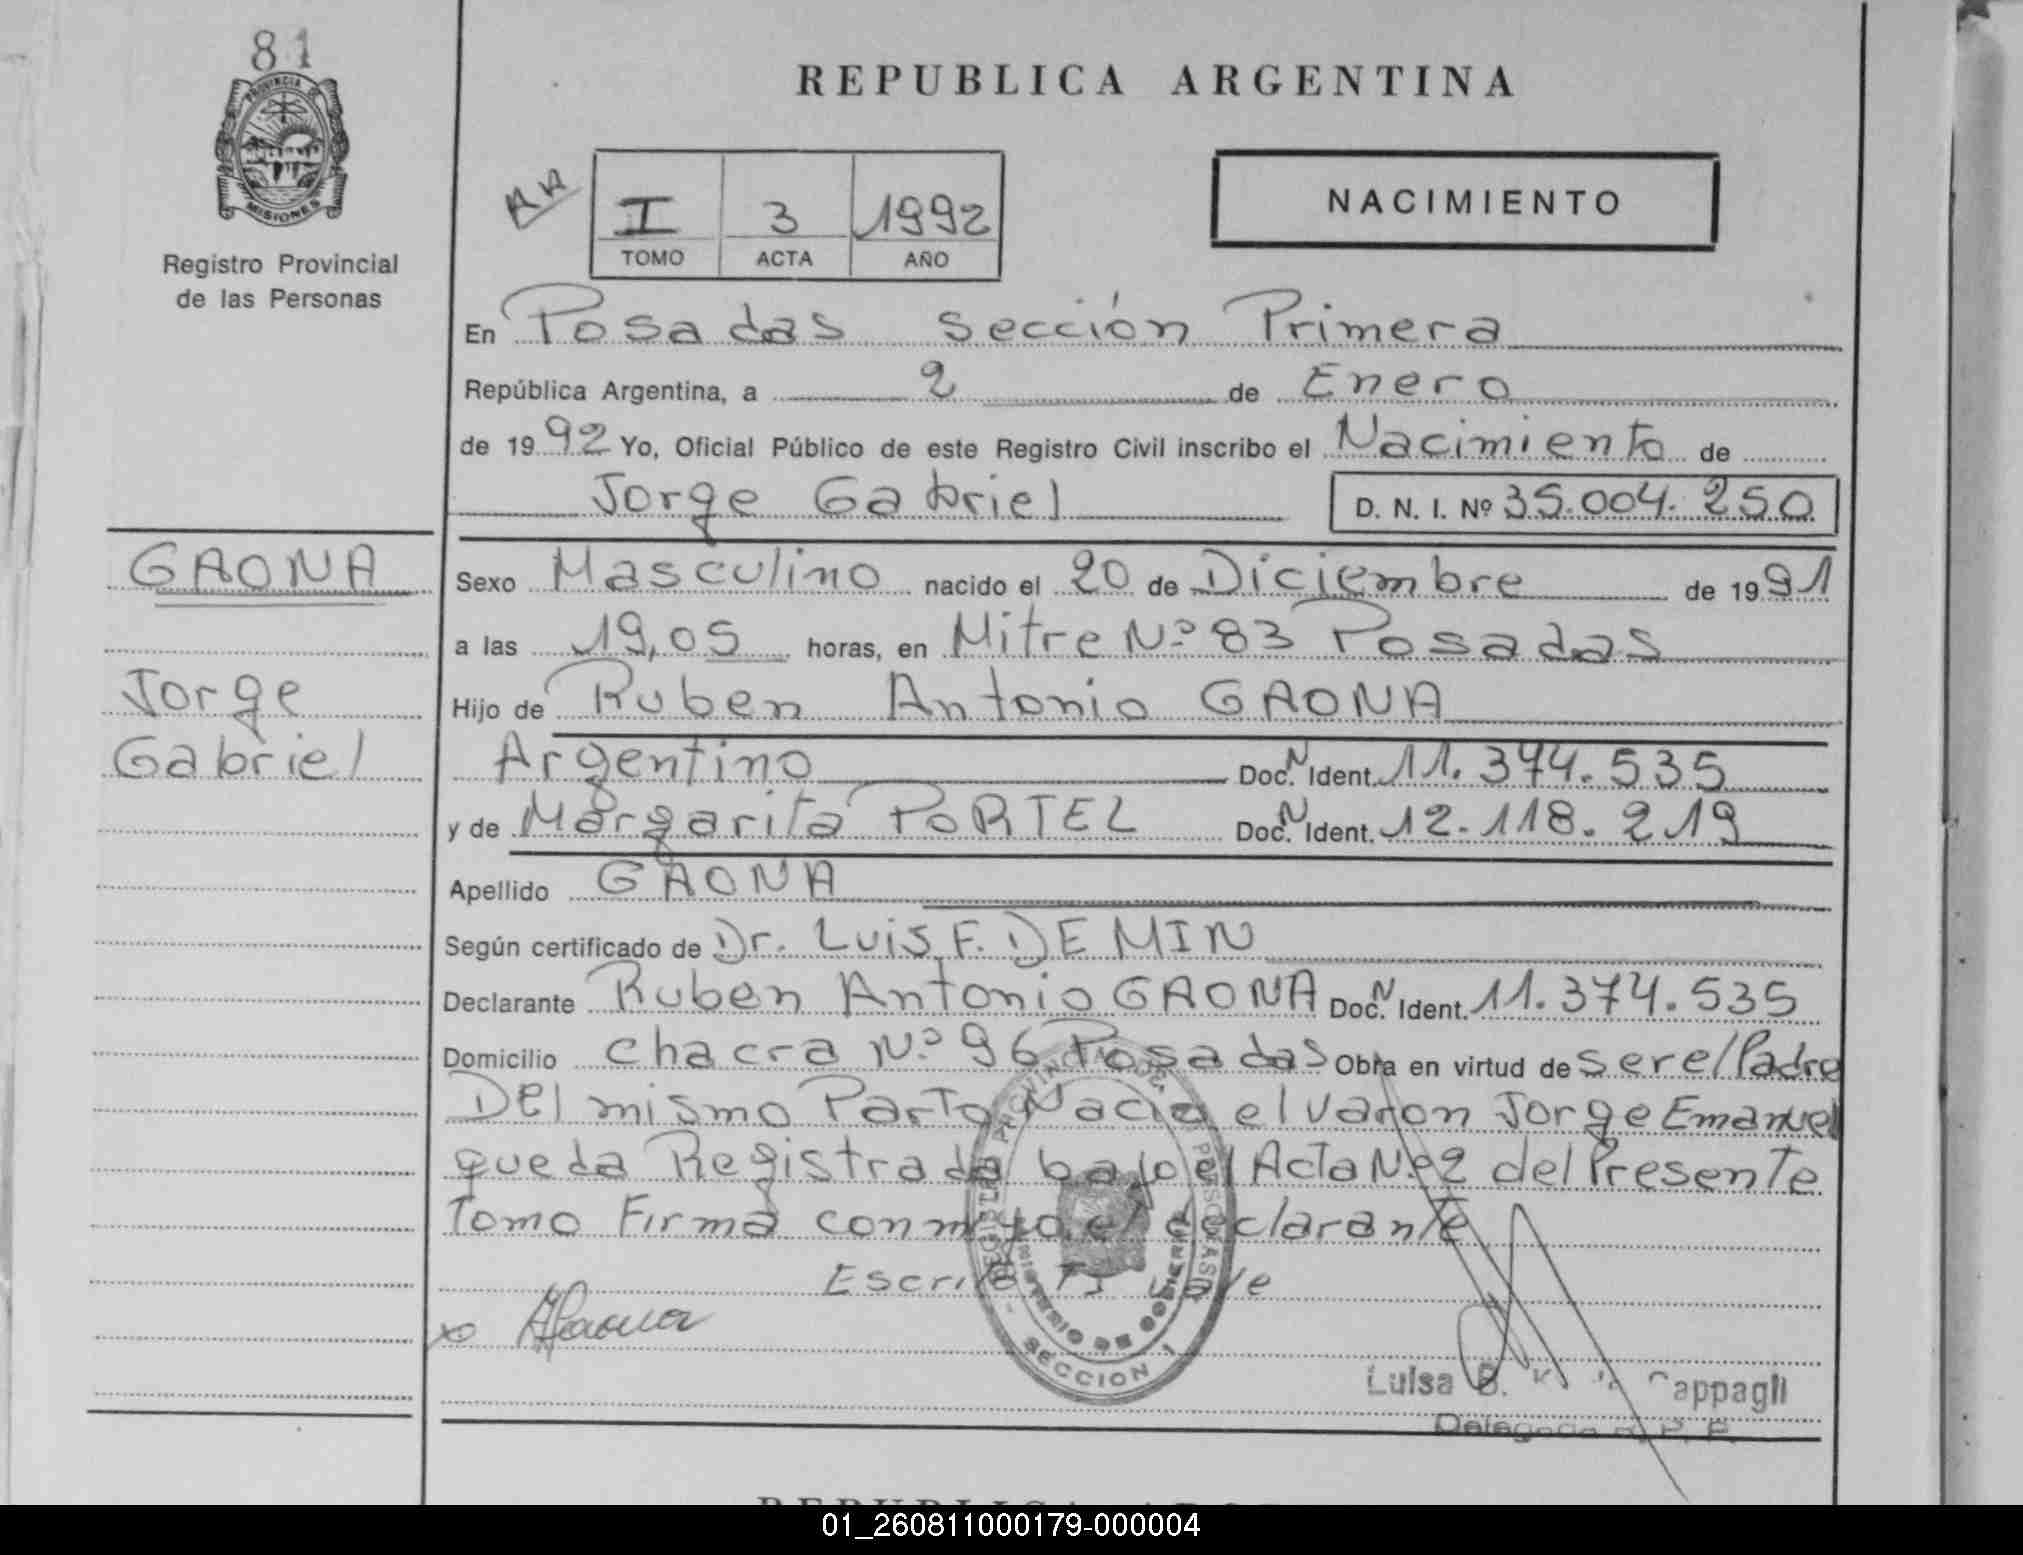 81
PROVINCIA DE
MISIONES
Registro Provincial
de las Personas
REPUBLICA ARGENTINA
I 3 1992
TOMO ACTA AÑO
NACIMIENTO
En Posadas sección Primera
República Argentina, a 2 de Enero
de 1992 Yo, Oficial Público de este Registro Civil inscribo el Nacimiento de
Jorge Gabriel D. N. I. Nº 35.004.250
GAONA
Jorge
Gabriel
Sexo Masculino nacido el 20 de Diciembre de 1991
a las 19,05 horas, en Mitre Nº 83 Posadas
Hijo de Ruben Antonio GAONA
Argentino Doc. N Ident. 11.374.535
y de Margarita PORTEL Doc. N Ident. 12.118.219
Apellido GAONA
Según certificado de Dr. Luis F. DE MIN
Declarante Ruben Antonio GAONA Doc. N Ident. 11.374.535
Domicilio chacra Nº 96 Posadas Obra en virtud de ser el Padre
Del mismo Parto Nacio el varon Jorge Emanuel
queda Registrada bajo el Acta Nº 2 del Presente
Tomo Firma conmigo el declarante
MINISTERIO DE GOBIERNO
SECCION 1
Gaona
Luisa B. Cappagli
Delegada R. P. P.
01_260811000179-000004